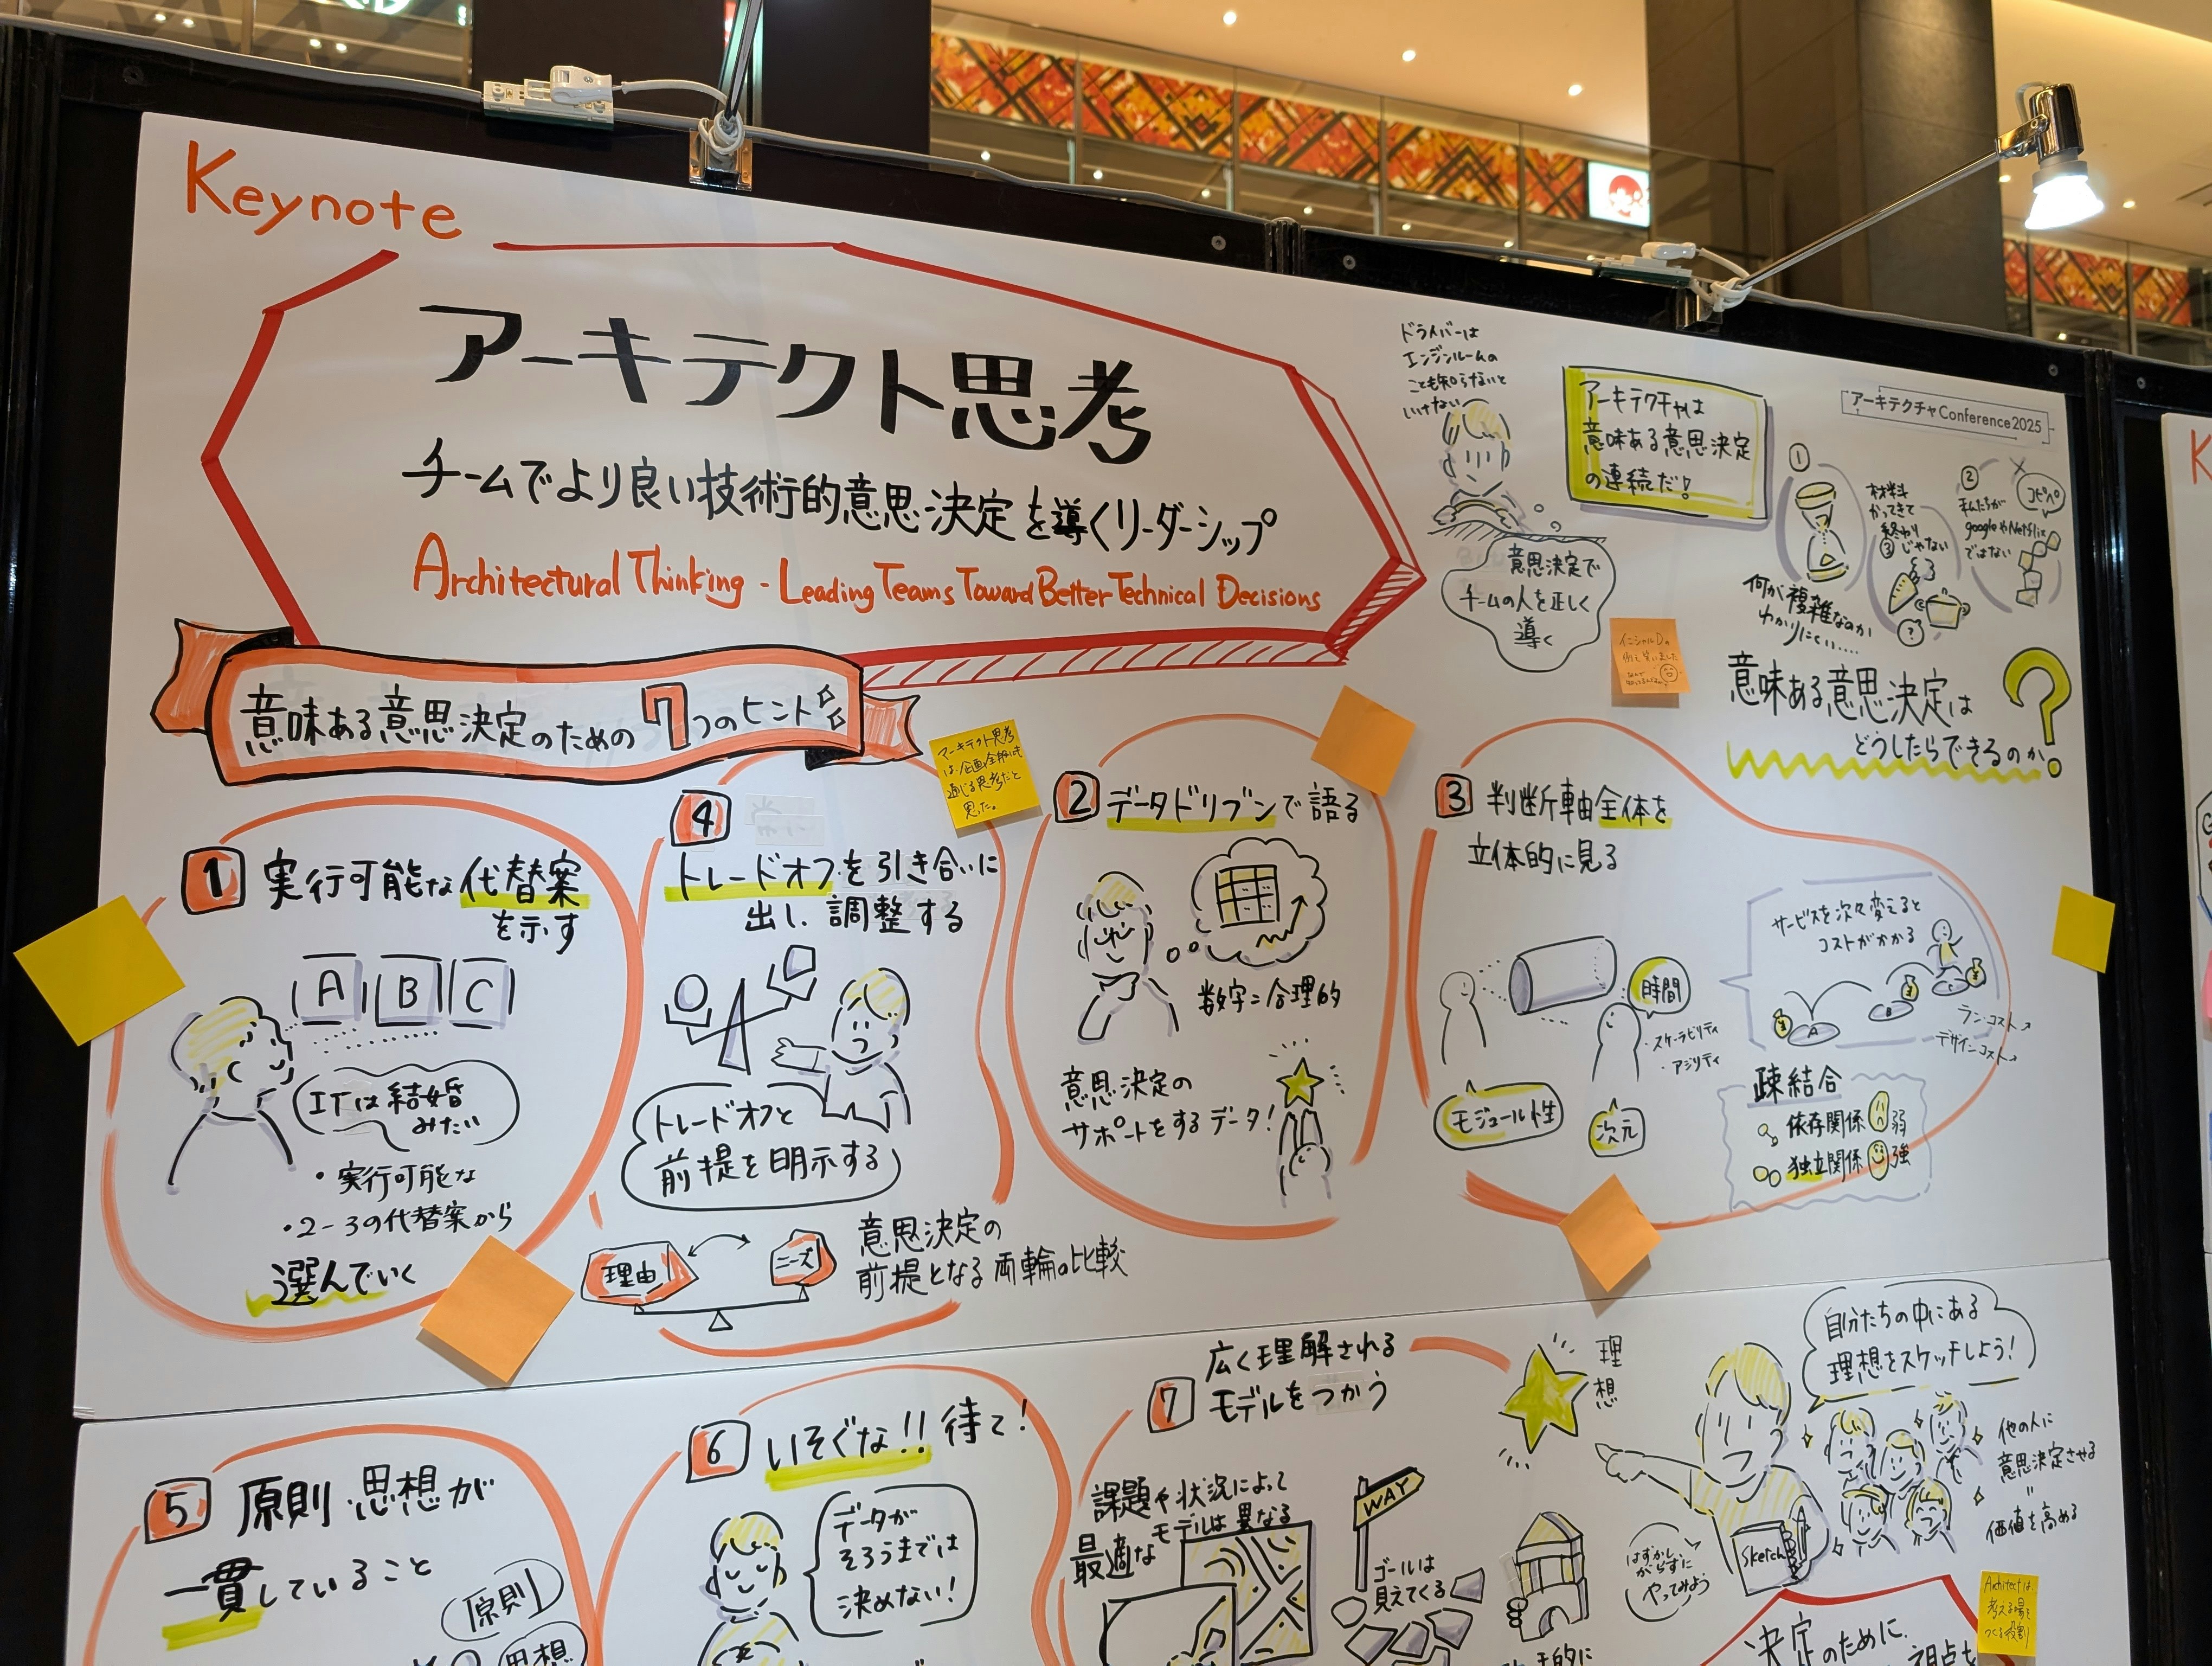 Keynote
アーキテクト思考
チームでより良い技術的意思決定を導くリーダーシップ
Architectural Thinking - Leading Teams Toward Better Technical Decisions
ドライバーは
エンジンルームの
ことも知らないと
いけない
意思決定で
チームの人を正しく
導く
アーキテクチャは
意味ある意思決定
の連続だ!
アーキテクチャConference2025
①
何が複雑なのか
わかりにくい.....
②
私たちが
googleやNetflix
ではない
コピペ
③
材料
かってきて
終わり
じゃない
?
意味ある意思決定は
どうしたらできるのか?
意味ある意思決定のための7つのヒント
アーキテクト思考
は、企画全般にも
通じる思考だと
思った。
1 実行可能な代替案
を示す
A B C
ITは結婚
みたい
・実行可能な
・2-3の代替案から
選んでいく
2 データドリブンで語る
数字=合理的
意思決定の
サポートをするデータ!
3 判断軸全体を
立体的に見る
時間
・スケーラビリティ
・アジリティ
モジュール性
次元
サービスを次々変えると
コストがかかる
A
B
C
ラン・コスト↗
デザインコスト↗
疎結合
依存関係 弱
独立関係 強
4 トレードオフを引き合いに
出し、調整する
トレードオフと
前提を明示する
理由
ニーズ
意思決定の
前提となる両輪の比較
5 原則・思想が
一貫していること
原則
思想
6 いそぐな!! 待て!
データが
そろうまでは
決めない!
7 広く理解される
モデルをつかう
課題や状況によって
最適なモデルは異なる
WAY
ゴールは
見えてくる
理想
自分たちの中にある
理想をスケッチしよう!
Sketch
はずかし
がらずに
やってみよう
他の人に
意思決定させる
=
価値を高める
Architectは、
考える場を
つくる役割
決定のために、